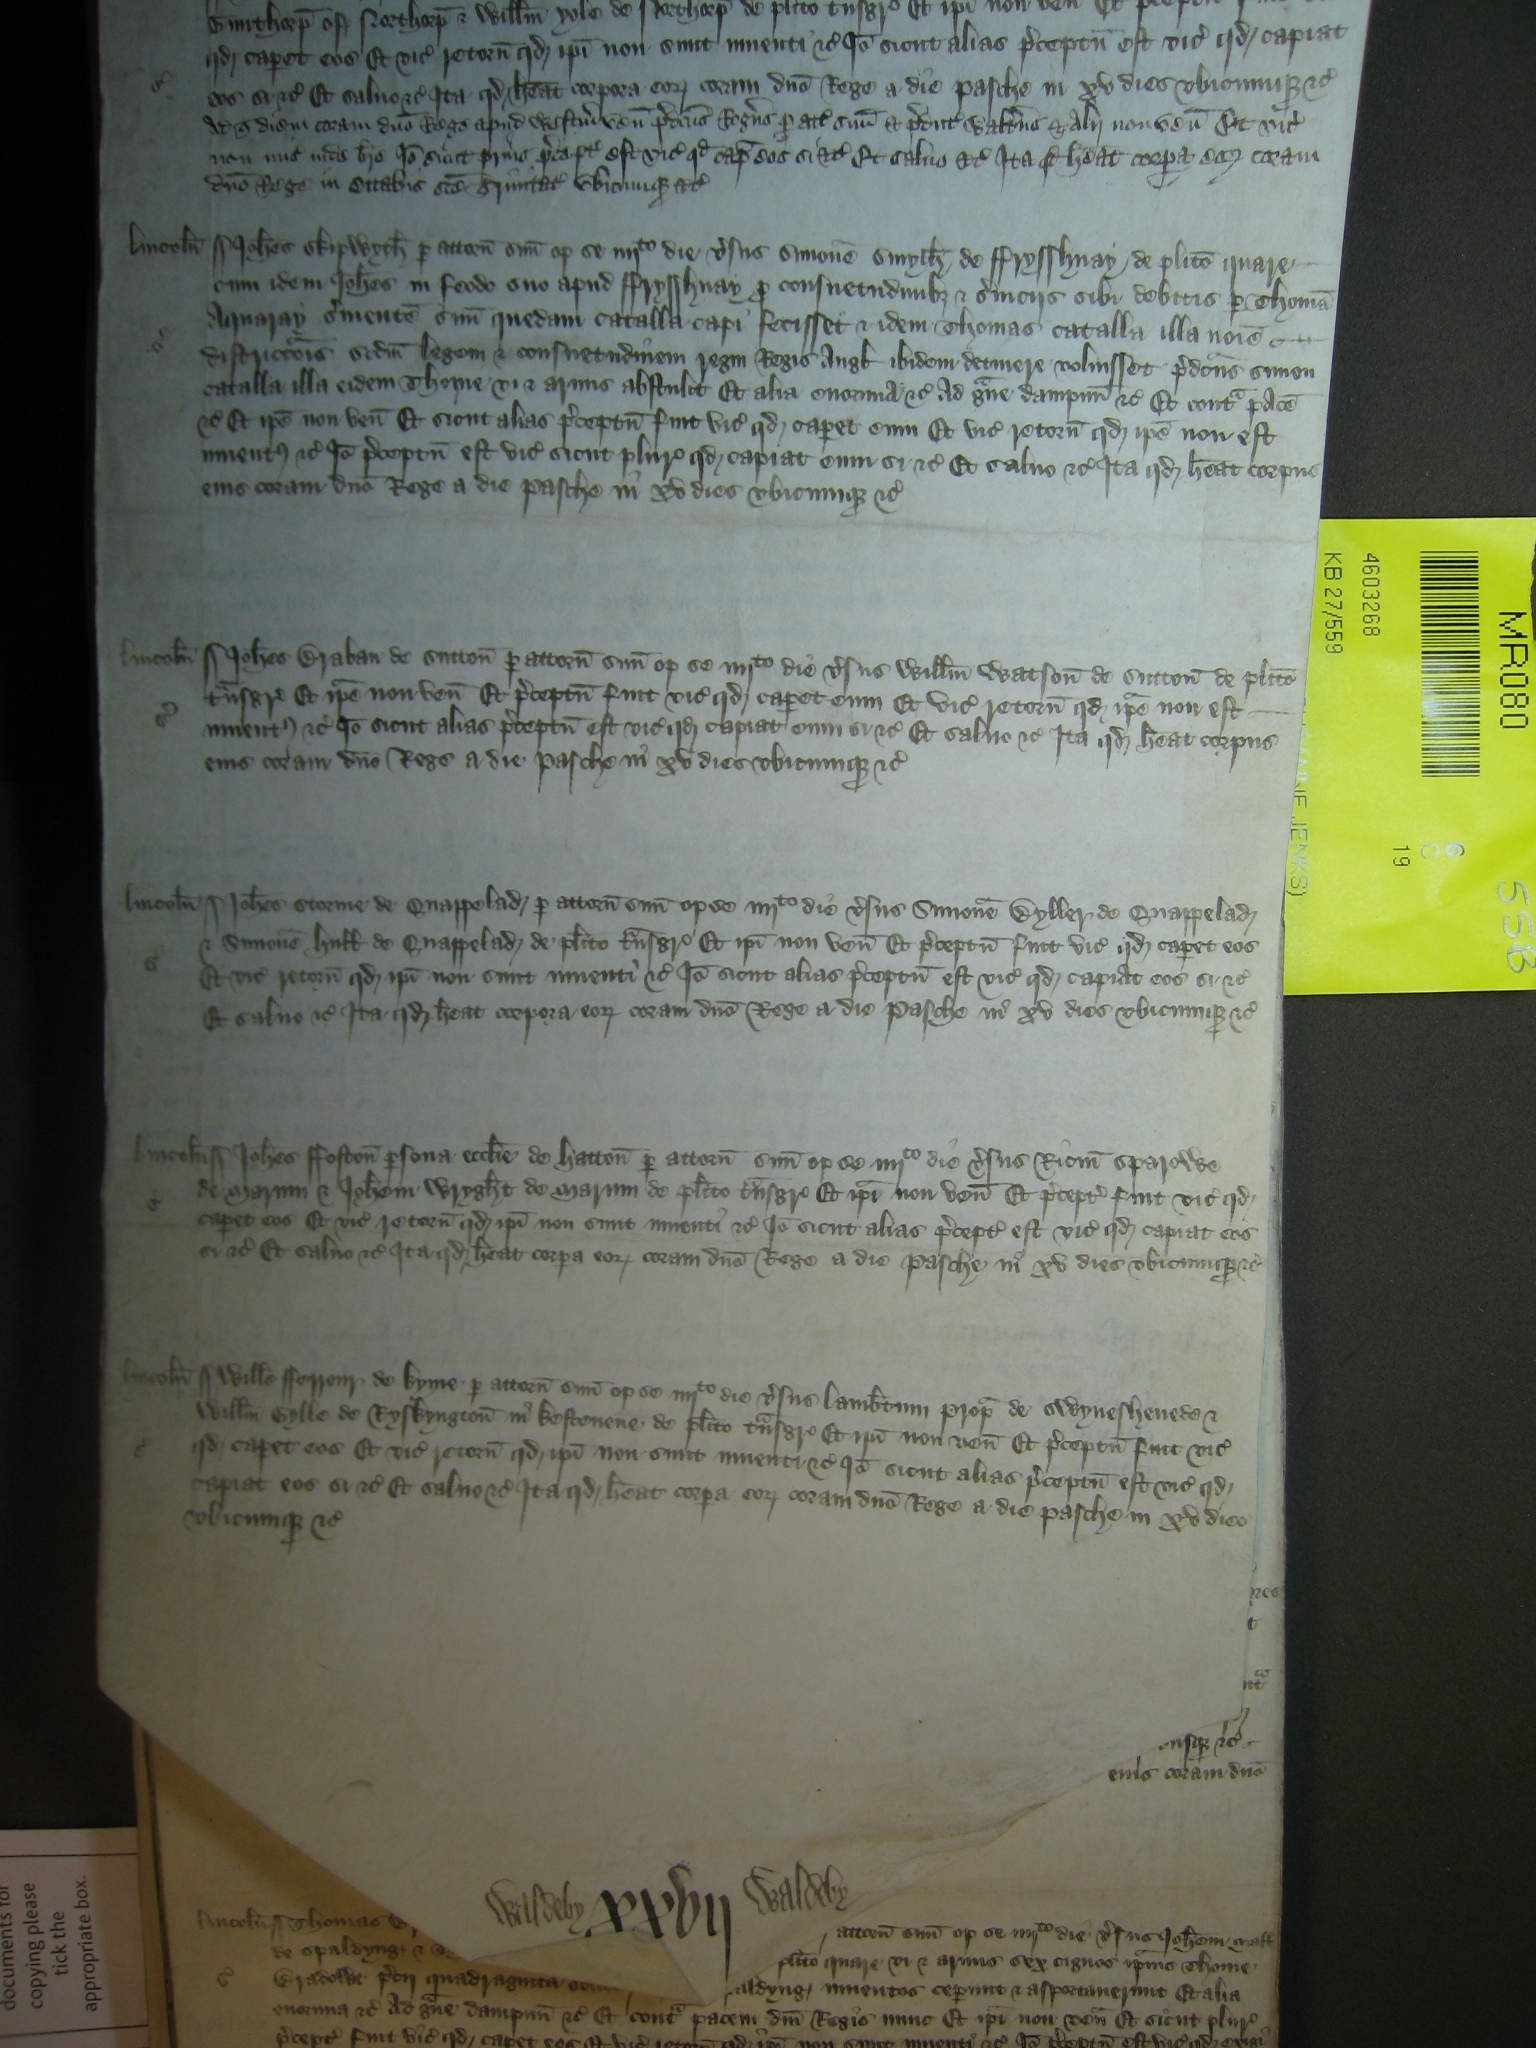 Gunthorp de Northorp & Willm yole de Northorp de plito tnsgr Et ipi non ven Et preceptu fuit vic
qd caperet eos Et vic retorn qd ipi non sunt inventi &c Io sicut alias preceptu est vic qd capiat
eos si &c Et salvo &c Ita qd heat corpora eor coram dno Rege a die Pasche in xv dies ubicumq &c
Ad diem coram dno Rege apud Westm ven per att suu Et alii non ven Et vic
non mis inde bre Io sicut prius precept est vic qd cap eos si &c Et salvo &c Ita qd heat corpa eor coram
dno Rege in octabis sce Trinitat ubicumq &c
Lincoln Johes Skipwyth p attorn suu op se iiijto die versus Simone Smyth de ffrysshnay de plito quare
cum idem Johes in feodo suo apud ffrysshnay p consuetudinibz & serviciis sibi debitis p Thomā
Aquaray serviente suu quedam catalla capi fecisset & idem Thomas catalla illa noie
districcois scdm legem & consuetudinem regni Regis Angl ibidem detinere voluisset predcus Simon
catalla illa eidem Thome vi & armis abstulit Et alia enormia &c Ad grave dampnu &c Et contra pace
&c Et ipe non ven Et sicut alias preceptu fuit vic qd caperet eum Et vic retorn qd ipe non est
inventus &c Io preceptu est vic sicut plur qd capiat eum si &c Et salvo &c Ita qd heat corpus
eius coram dno Rege a die Pasche in xv dies ubicumq &c
Lincoln Johes Braban de Sutton p attorn suu op se iiijto die versus Willm Watson de Sutton de plito
tnsgr Et ipe non ven Et preceptu fuit vic qd caperet eum Et vic retorn qd ipe non est
inventus &c Io sicut alias preceptu est vic qd capiat eum si &c Et salvo &c Ita qd heat corpus
eius coram dno Rege a die Pasche in xv dies ubicumq &c
Lincoln Johes Storme de Quappelad p attorn suu op se iiijto die versus Simone Dyller de Quappelad
& Simone hull de Quappelad de plito tnsgr Et ipi non ven Et preceptu fuit vic qd caperet eos
Et vic retorn qd ipi non sunt inventi &c Io sicut alias preceptu est vic qd capiat eos si &c
Et salvo &c Ita qd heat corpora eor coram dno Rege a die Pasche in xv dies ubicumq &c
Lincoln Johes ffoston persona ecclie de hatton p attorn suu op se iiijto die versus Ricm Sparowe
de Marum & Johem Wryght de Marum de plito tnsgr Et ipi non ven Et precept fuit vic qd
caperet eos Et vic retorn qd ipi non sunt inventi &c Io sicut alias precept est vic qd capiat eos
si &c Et salvo &c Ita qd heat corpa eor coram dno Rege a die Pasche in xv dies ubicumq &c
Lincoln Wills fferrour de kyme p attorn suu op se iiijto die versus Lambtum Prop de Swyneshevede &
Willm Gylle de Ryskyngton in kestevene de plito tnsgr Et ipi non ven Et preceptu fuit vic
qd caperet eos Et vic retorn qd ipi non sunt inventi &c Io sicut alias preceptu est vic qd
capiat eos si &c Et salvo &c Ita qd heat corpa eor coram dno Rege a die Pasche in xv dies
ubicumq &c
eius coram dno
Waldeby xxvij Waldeby
Lincoln Thomas attorn suu op se iiijto die versus Johem
de Spaldyng & plito quare vi & armis sex cignos ipius Thome
precii quadraginta aldyng inventos ceperunt & asportaverunt Et alia
enormia &c Ad grave dampnu &c Et contra pacem dni Regis nunc Et ipi non ven Et sicut plur
precept fuit vic qd caperet eos Et vic retorn qd ipi non sunt inventi &c Io preceptu est vic qd exigi
MR080
4603268
KB 27/559
JENKS)
19
558
documents for
copying please
tick the
appropriate box.